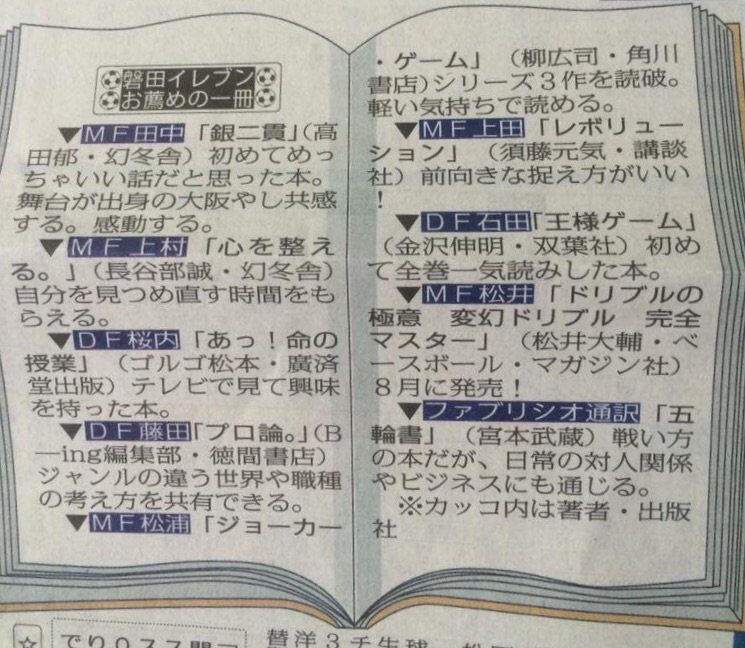 磐田イレブン
お薦めの一冊
▼MF田中「銀二貫」(高
田郁・幻冬舎)初めてめっ
ちゃいい話だと思った本。
舞台が出身の大阪やし共感
する。感動する。
▼MF上村「心を整え
る。」(長谷部誠・幻冬舎)
自分を見つめ直す時間をも
らえる。
▼DF桜内「あっ!命の
授業」(ゴルゴ松本・廣済
堂出版)テレビで見て興味
を持った本。
▼DF藤田「プロ論。」(B
―ing編集部・徳間書店)
ジャンルの違う世界や職種
の考え方を共有できる。
▼MF松浦「ジョーカー
・ゲーム」(柳広司・角川
書店)シリーズ3作を読破。
軽い気持ちで読める。
▼MF上田「レボリュー
ション」(須藤元気・講談
社)前向きな捉え方がいい
!
▼DF石田「王様ゲーム」
(金沢伸明・双葉社)初め
て全巻一気読みした本。
▼MF松井「ドリブルの
極意 変幻ドリブル 完全
マスター」(松井大輔・ベ
ースボール・マガジン社)
8月に発売!
▼ファブリシオ通訳「五
輪書」(宮本武蔵)戦い方
の本だが、日常の対人関係
やビジネスにも通じる。
※カッコ内は著者・出版
社